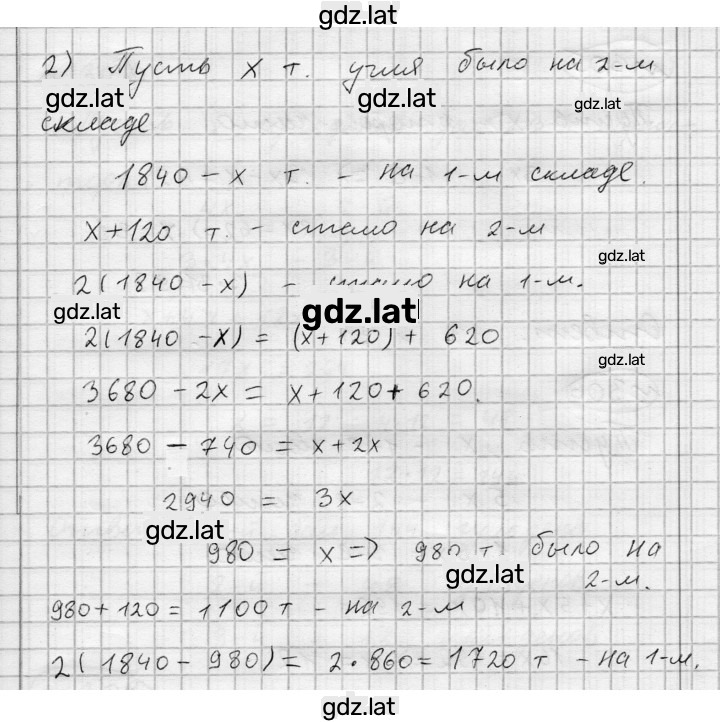 gdz.lat
2) Пусть х т. угля было на 2-м
gdz.lat gdz.lat gdz.lat
складе
1840 - х т. - на 1-м складе.
х + 120 т. - стало на 2-м
gdz.lat
2(1840 - х) - на 1-м.
gdz.lat gdz.lat
2(1840 - х) = (х + 120) + 620
gdz.lat
3680 - 2х = х + 120 + 620.
3680 - 740 = х + 2х
2940 = 3х
gdz.lat
980 = х => 980 т. было на
gdz.lat 2-м.
980 + 120 = 1100 т - на 2-м
2(1840 - 980) = 2 • 860 = 1720 т - на 1-м.
gdz.lat